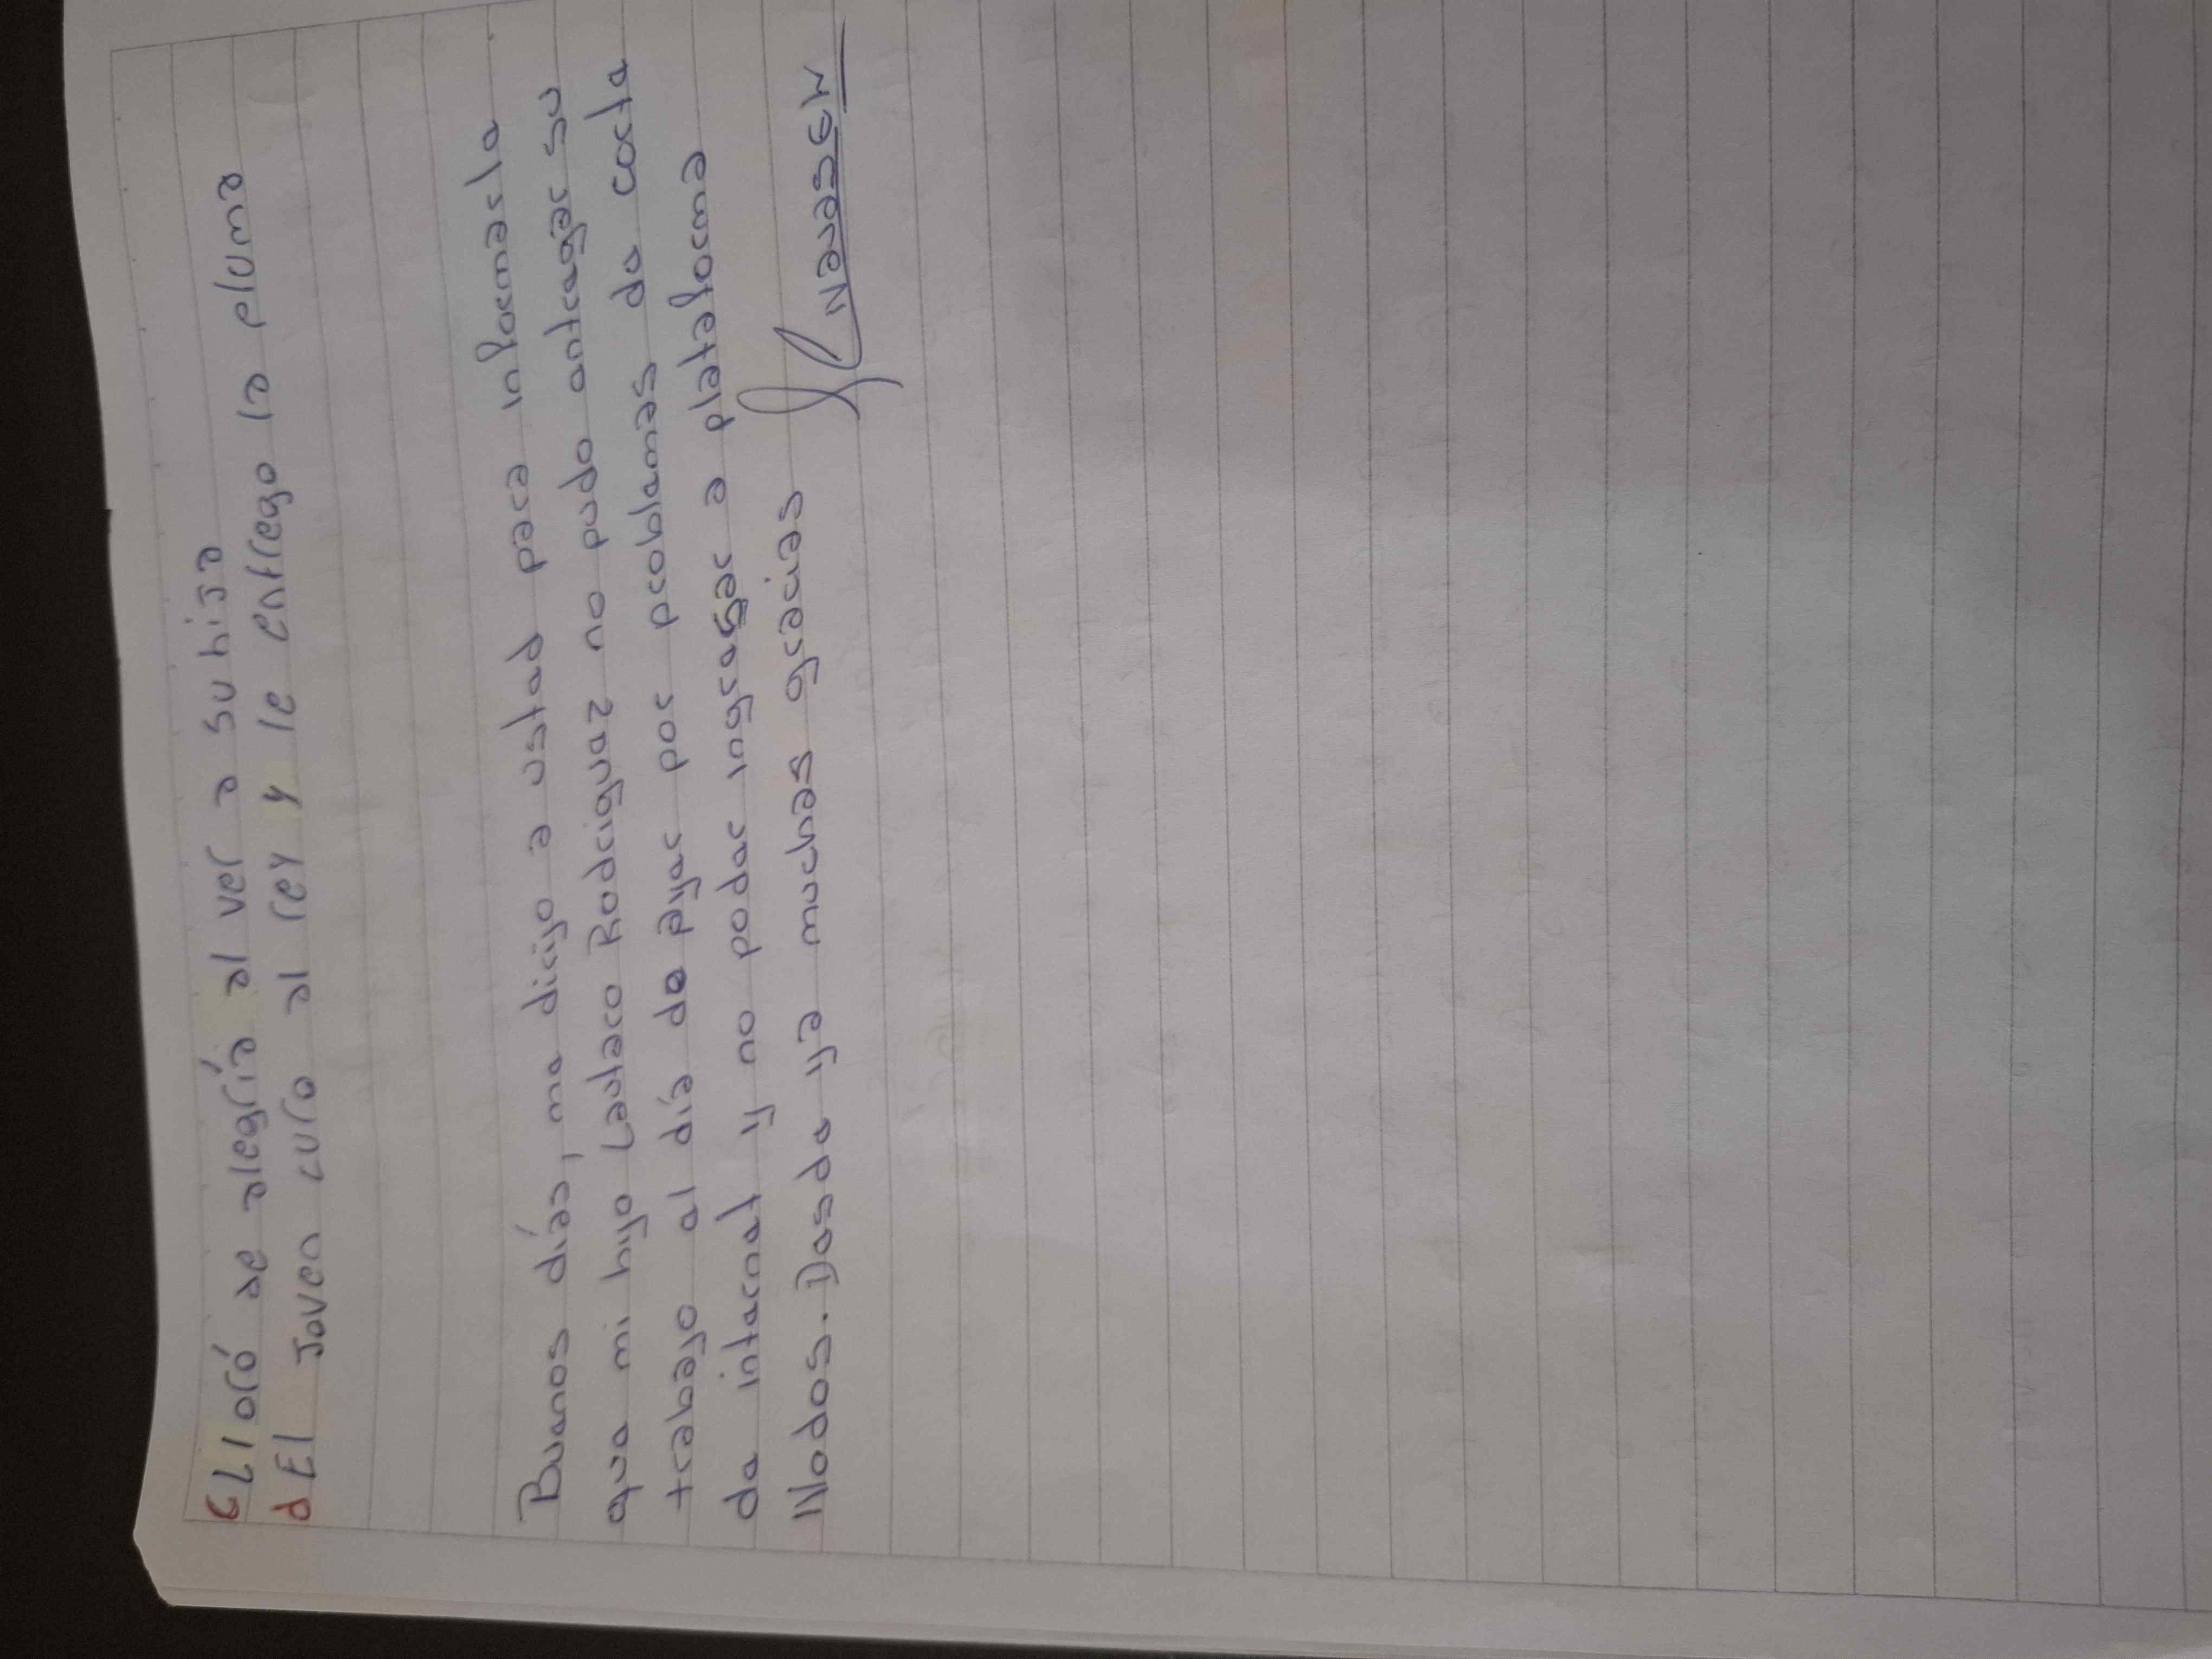 c Lloró de alegría al ver a su hija
d El joven curo al rey y le entrego la pluma
Buenos días, me dirijo a usted para informarle
que mi hijo Lautaro Rodriguez no pudo entregar su
trabajo el día de ayer por problemas de corte
de internet y no poder ingresar a plataforma
Nodos. Desde ya muchas gracias